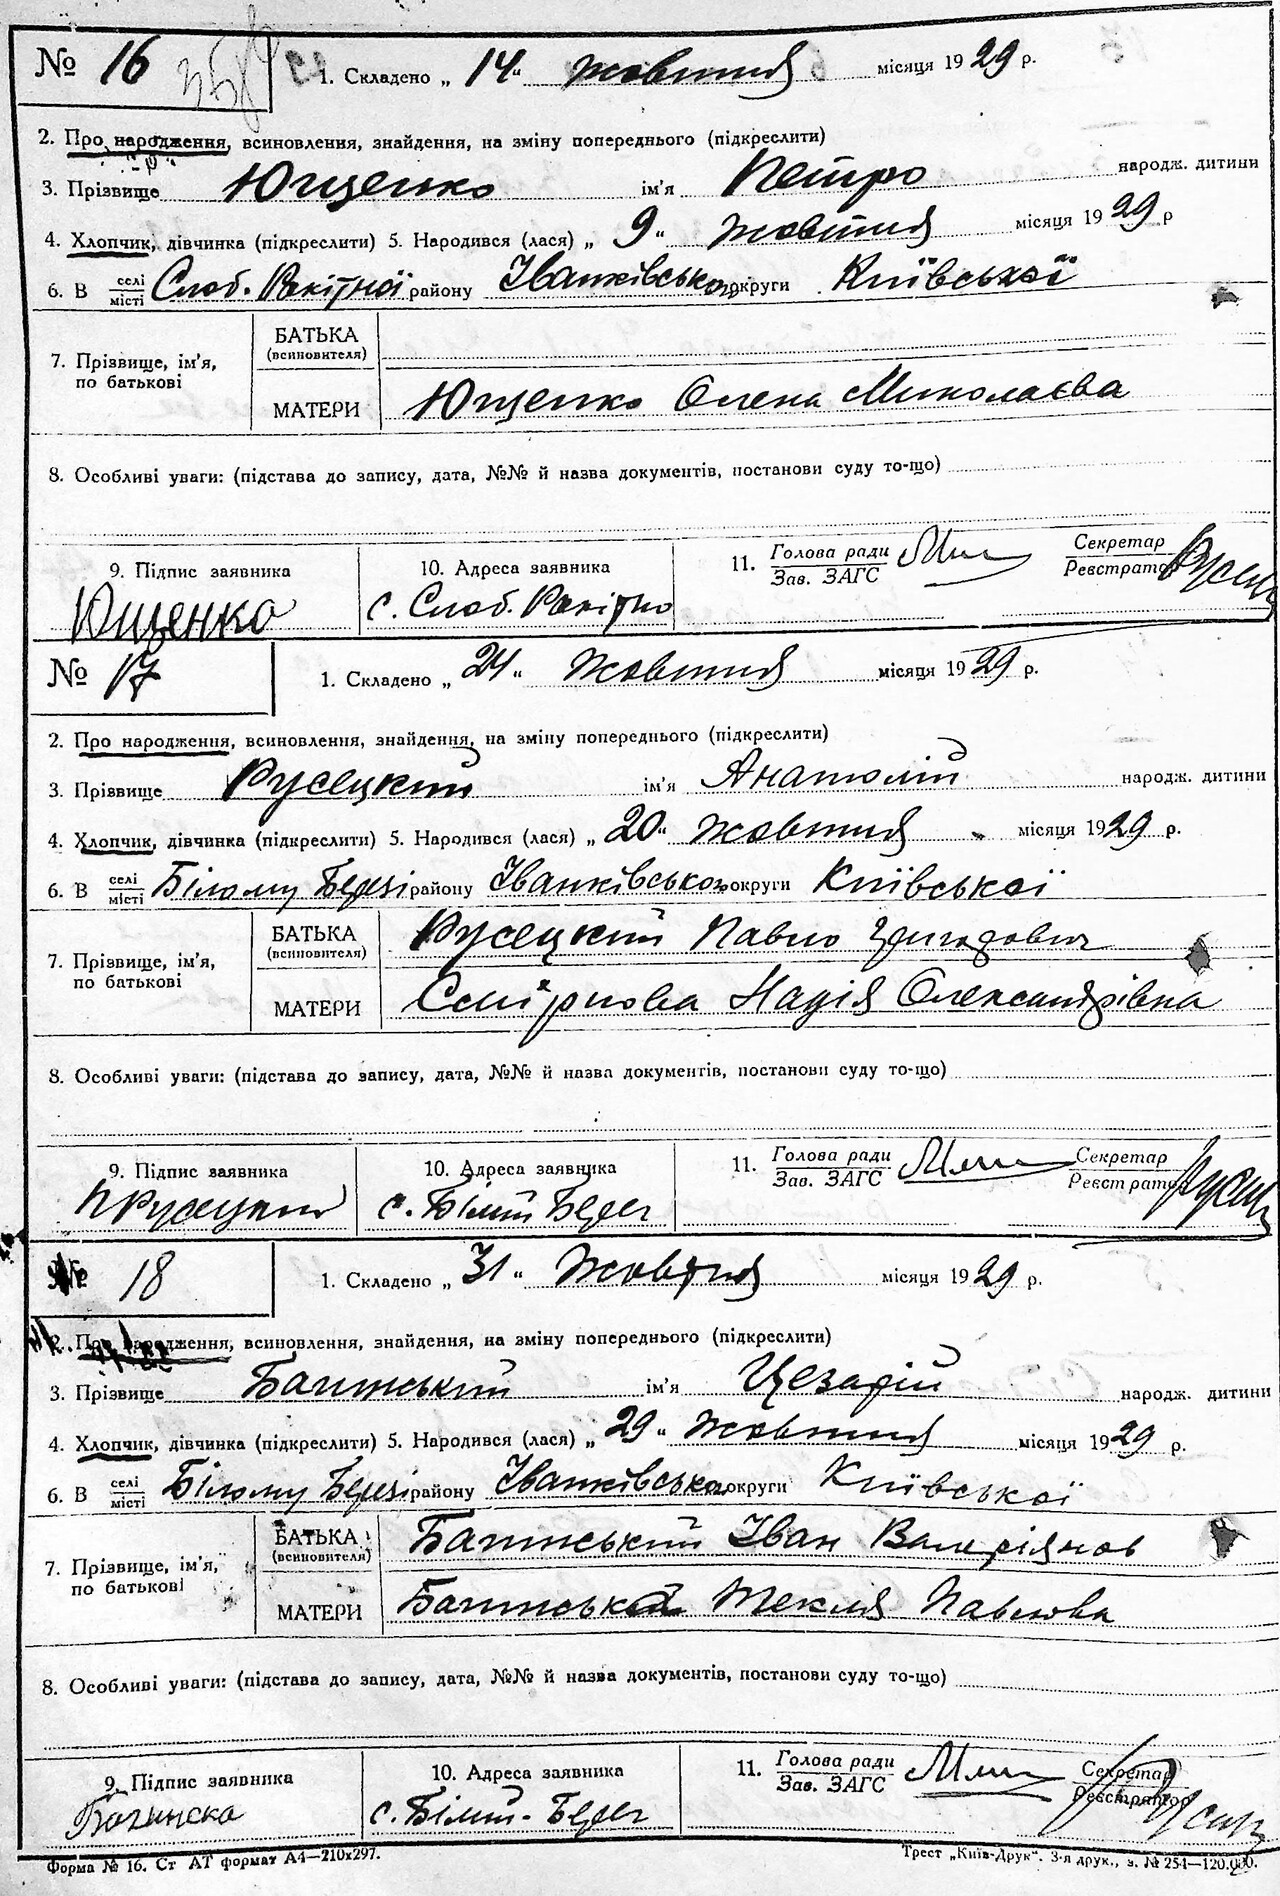 № 16 1. Складено „ 14 “ жовтня місяця 1929 р.
2. Про народження, всиновлення, знайдення, на зміну попереднього (підкреслити)
3. Прізвище Ющенко ім'я Петро народж. дитини
4. Хлопчик, дівчинка (підкреслити) 5. Народився (лася) „ 9 “ жовтня місяця 1929 р
6. В селі/місті Слоб. Ракітної району Іванківського округи Київської
БАТЬКА
(всиновителя)
7. Прізвище, ім'я,
по батькові
МАТЕРИ Ющенко Олена Миколаєва
8. Особливі уваги: (підстава до запису, дата, №№ й назва документів, постанови суду то-що)
9. Підпис заявника 10. Адреса заявника 11. Голова ради Секретар
Зав. ЗАГС Реєстратор
Ющенко с. Слоб. Ракітно
№ 17 1. Складено „ 24 “ жовтня місяця 1929 р.
2. Про народження, всиновлення, знайдення, на зміну попереднього (підкреслити)
3. Прізвище Русецкий ім'я Анатолій народж. дитини
4. Хлопчик, дівчинка (підкреслити) 5. Народився (лася) „ 20 “ жовтня місяця 1929 р.
6. В селі/місті Білому Березі району Іванківського округи Київської
БАТЬКА Русецкий Павло
(всиновителя)
7. Прізвище, ім'я,
по батькові
МАТЕРИ Смірнова Надія Олександрівна
8. Особливі уваги: (підстава до запису, дата, №№ й назва документів, постанови суду то-що)
9. Підпис заявника 10. Адреса заявника 11. Голова ради Секретар
Зав. ЗАГС Реєстратор
П Русецкий с. Білий Берег
№ 18 1. Складено „ 31 “ жовтня місяця 1929 р.
2. Про народження, всиновлення, знайдення, на зміну попереднього (підкреслити)
3. Прізвище Багинський ім'я Цезарій народж. дитини
4. Хлопчик, дівчинка (підкреслити) 5. Народився (лася) „ 29 “ жовтня місяця 1929 р.
6. В селі/місті Білому Березі району Іванківського округи Київської
БАТЬКА Багинський Іван Валеріянов
(всиновителя)
7. Прізвище, ім'я,
по батькові
МАТЕРИ Багинська Текля Павлова
8. Особливі уваги: (підстава до запису, дата, №№ й назва документів, постанови суду то-що)
9. Підпис заявника 10. Адреса заявника 11. Голова ради Секретар
Зав. ЗАГС Реєстратор
Багинска с. Білий-Берег
Форма № 16. Ст АТ формат А4—210х297. Трест „Київ-Друк“. 3-я друк., з. № 254—120.000.